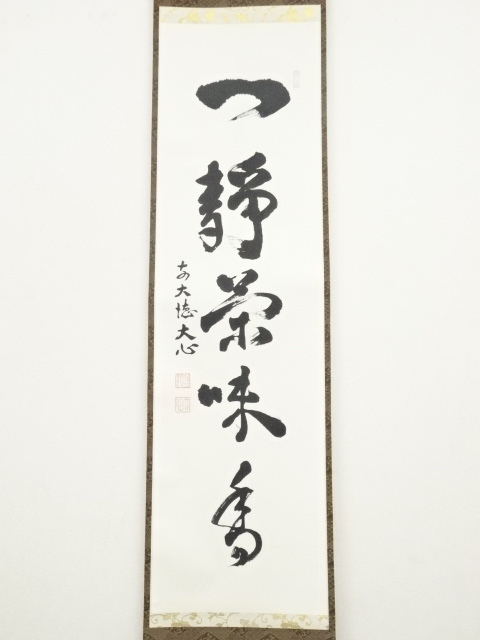 心静茶味香
前大徳大心